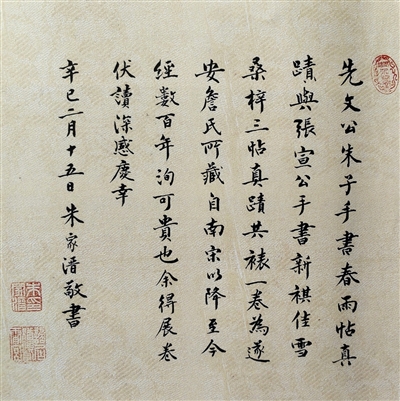 先文公朱子手書春雨帖真
蹟與張宣公手書新祺佳雪
桑梓三帖真蹟共裱一卷為遂
安詹氏所藏自南宋以降至今
經數百年洵可貴也余得展卷
伏讀深感慶幸
辛巳二月十五日朱家溍敬書
朱家溍